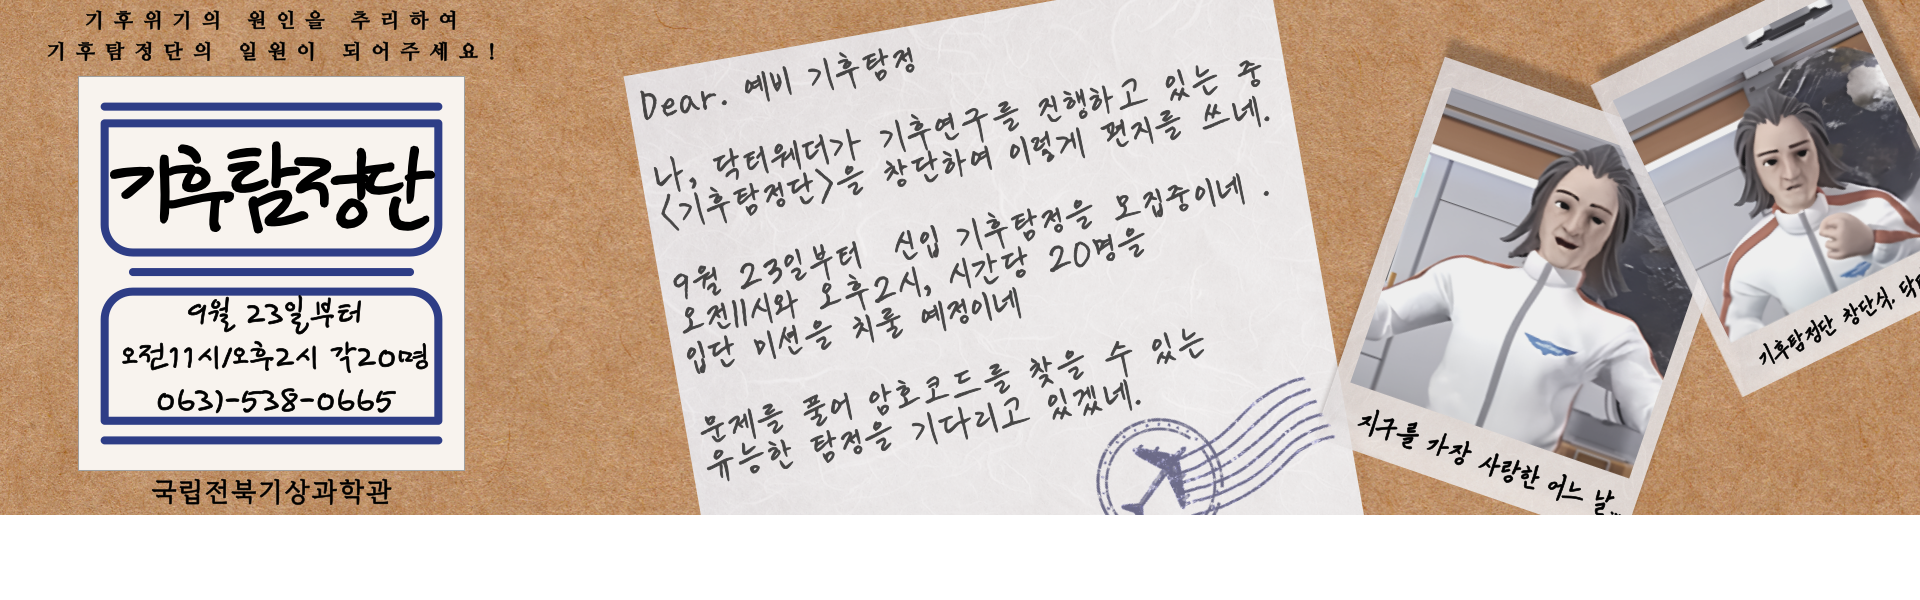 기후위기의 원인을 추리하여
기후탐정단의 일원이 되어주세요!
기후탐정단
9월 23일부터
오전11시/오후2시 각20명
063)-538-0665
국립전북기상과학관
Dear. 예비 기후탐정
나, 닥터웨더가 기후연구를 진행하고 있는 중
<기후탐정단>을 창단하여 이렇게 편지를 쓰네.
9월 23일부터 신입 기후탐정을 모집중이네.
오전11시와 오후2시, 시간당 20명을
입단 미션을 치룰 예정이네
문제를 풀어 암호코드를 찾을 수 있는
유능한 탐정을 기다리고 있겠네.
지구를 가장 사랑한 어느 날...
기후탐정단 창단식.